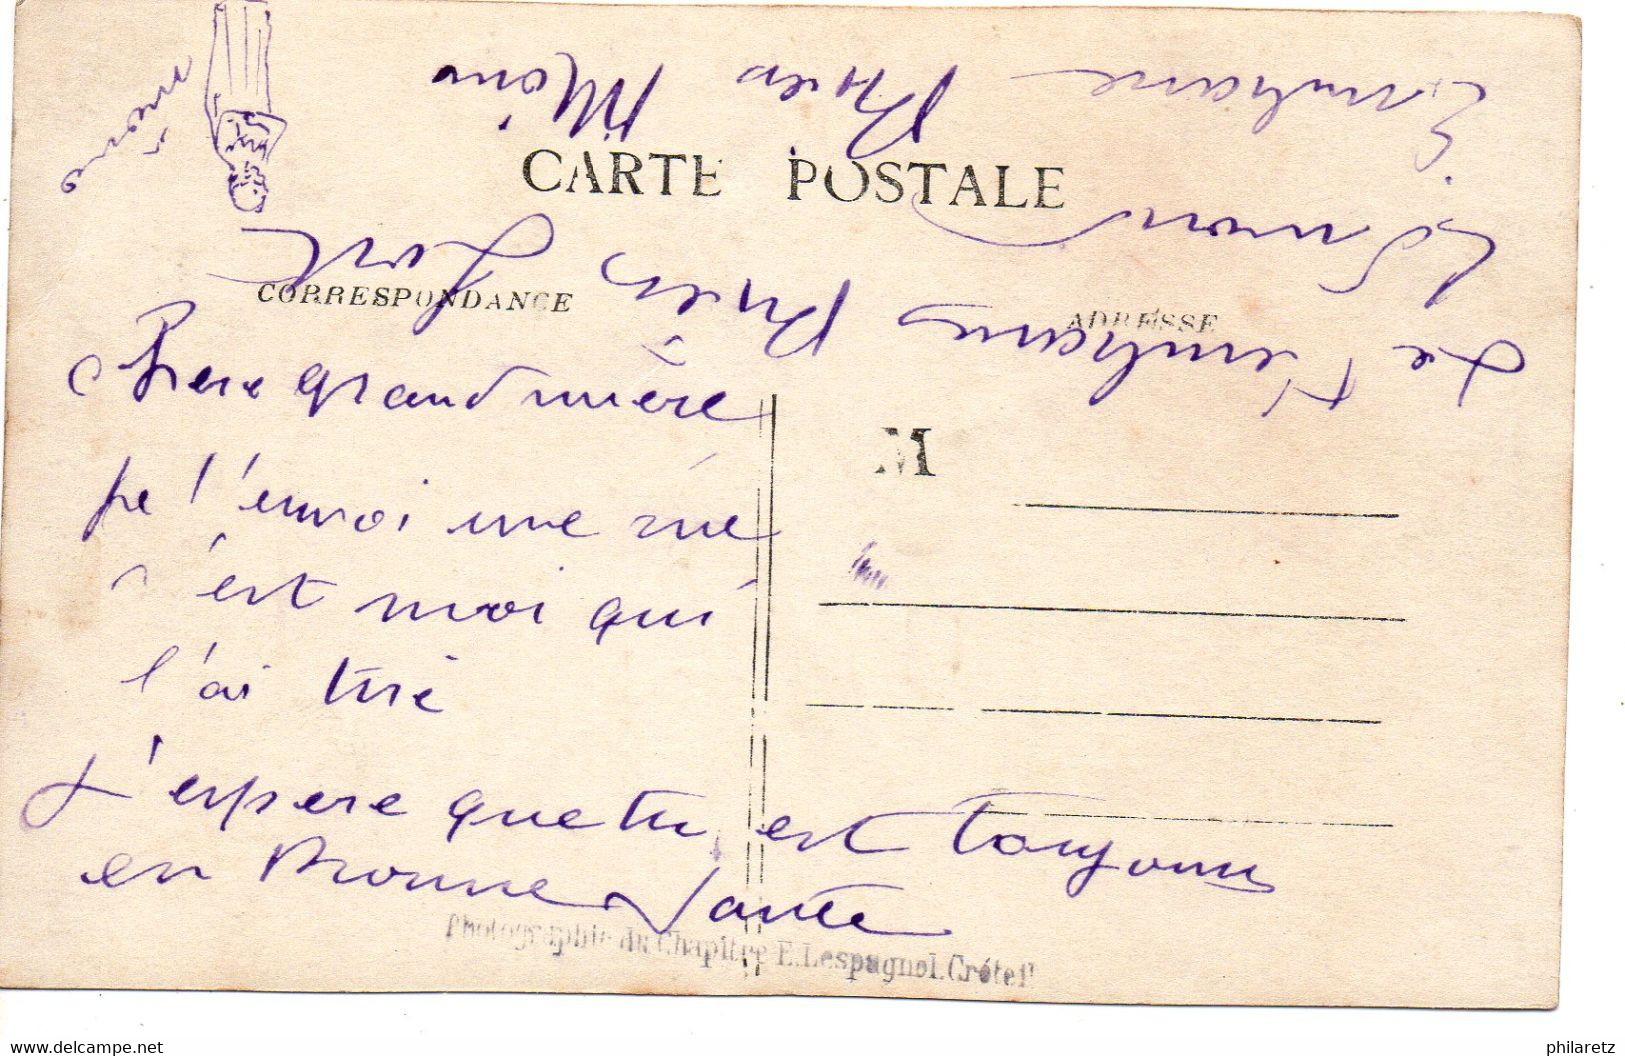 CARTE POSTALE
CORRESPONDANCE
ADRESSE
M
Chere grand mère
je t'envoi une vue
c'est moi qui
l'ai tiré
J'espere que tu est toujours
en Bonne Santé
Je t'embrasse bien fort
Simon
Embrasse bien
Photographie du Chapitre E. Lespagnol. Créteil
delcampe.net
philaretz